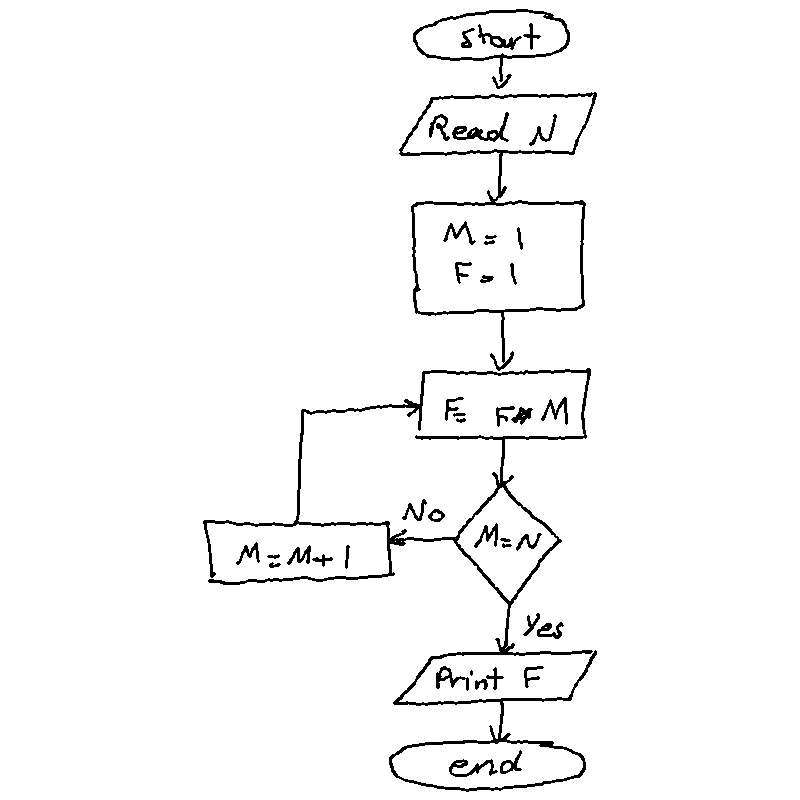 start
Read N
M = 1
F = 1
F = F * M
M = N
No
M = M + 1
Yes
Print F
end